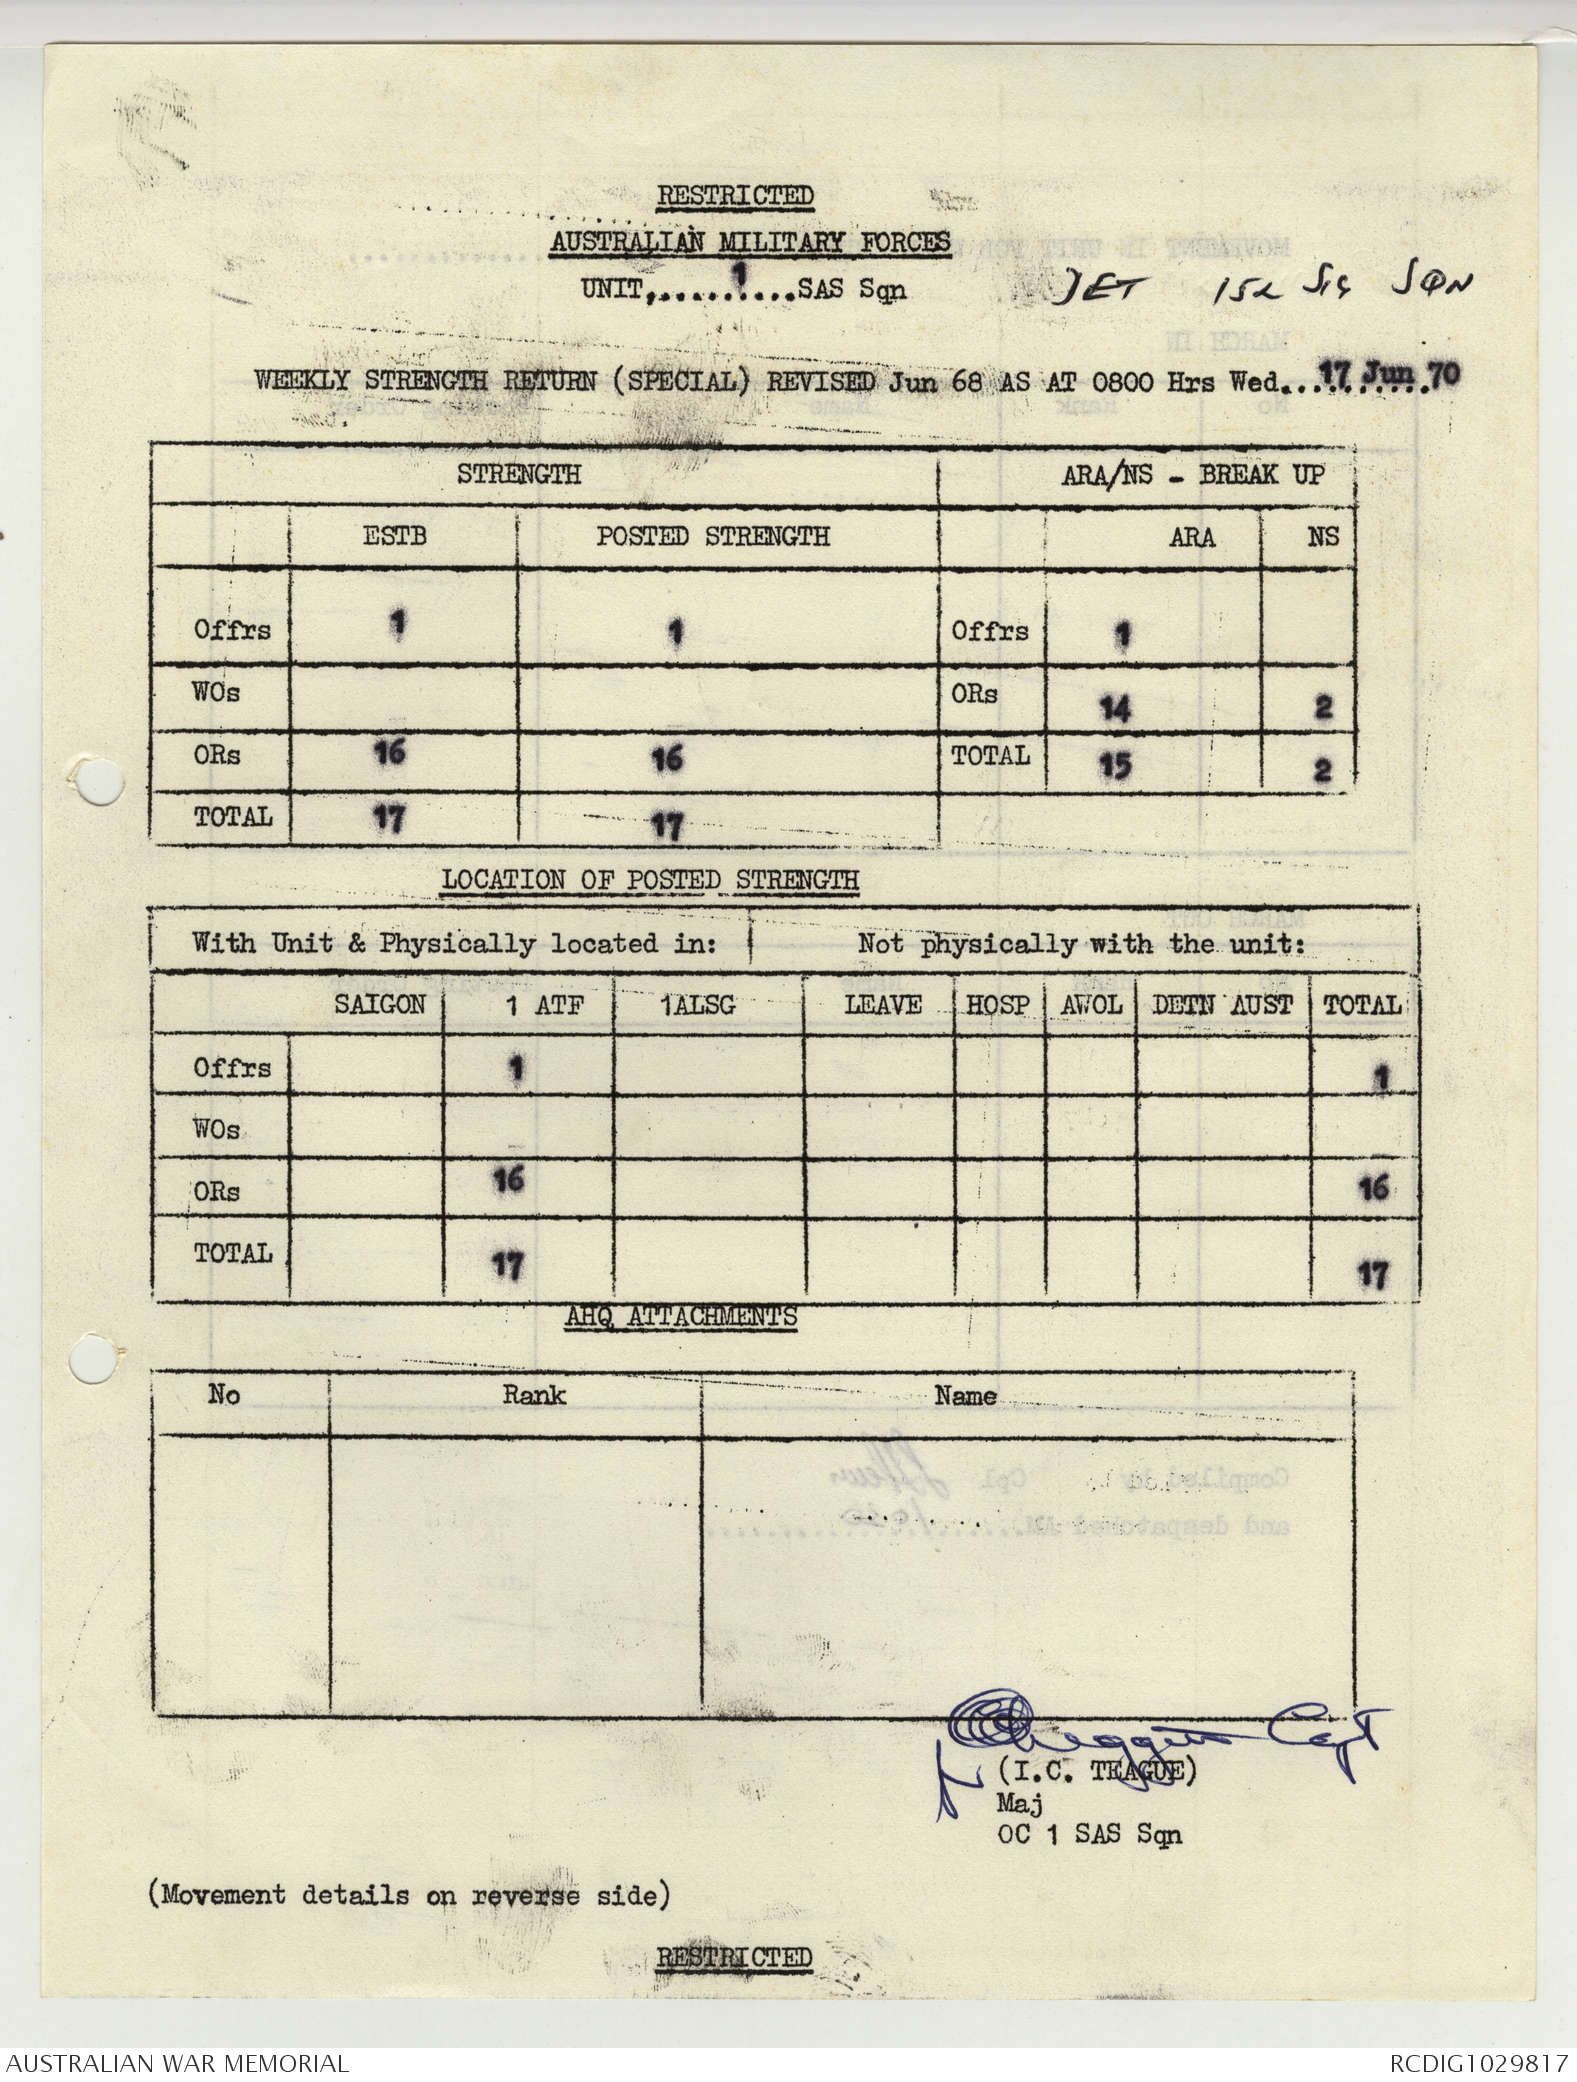 RESTRICTED
AUSTRALIAN MILITARY FORCES
UNIT,.....1.....SAS Sqn
DET 152 SIG SQN
WEEKLY STRENGTH RETURN (SPECIAL) REVISED Jun 68 AS AT 0800 Hrs Wed..17 Jun 70
STRENGTH ARA/NS - BREAK UP
ESTB POSTED STRENGTH ARA NS
Offrs 1 1 Offrs 1
WOs ORs 14 2
ORs 16 16 TOTAL 15 2
TOTAL 17 17
LOCATION OF POSTED STRENGTH
With Unit & Physically located in: Not physically with the unit:
SAIGON 1 ATF 1ALSG LEAVE HOSP AWOL DETN AUST TOTAL
Offrs 1 1
WOs
ORs 16 16
TOTAL 17 17
AHQ ATTACHMENTS
No Rank Name
Capt
(I.C. TEAGUE)
Maj
OC 1 SAS Sqn
(Movement details on reverse side)
RESTRICTED
AUSTRALIAN WAR MEMORIAL RCDIG1029817